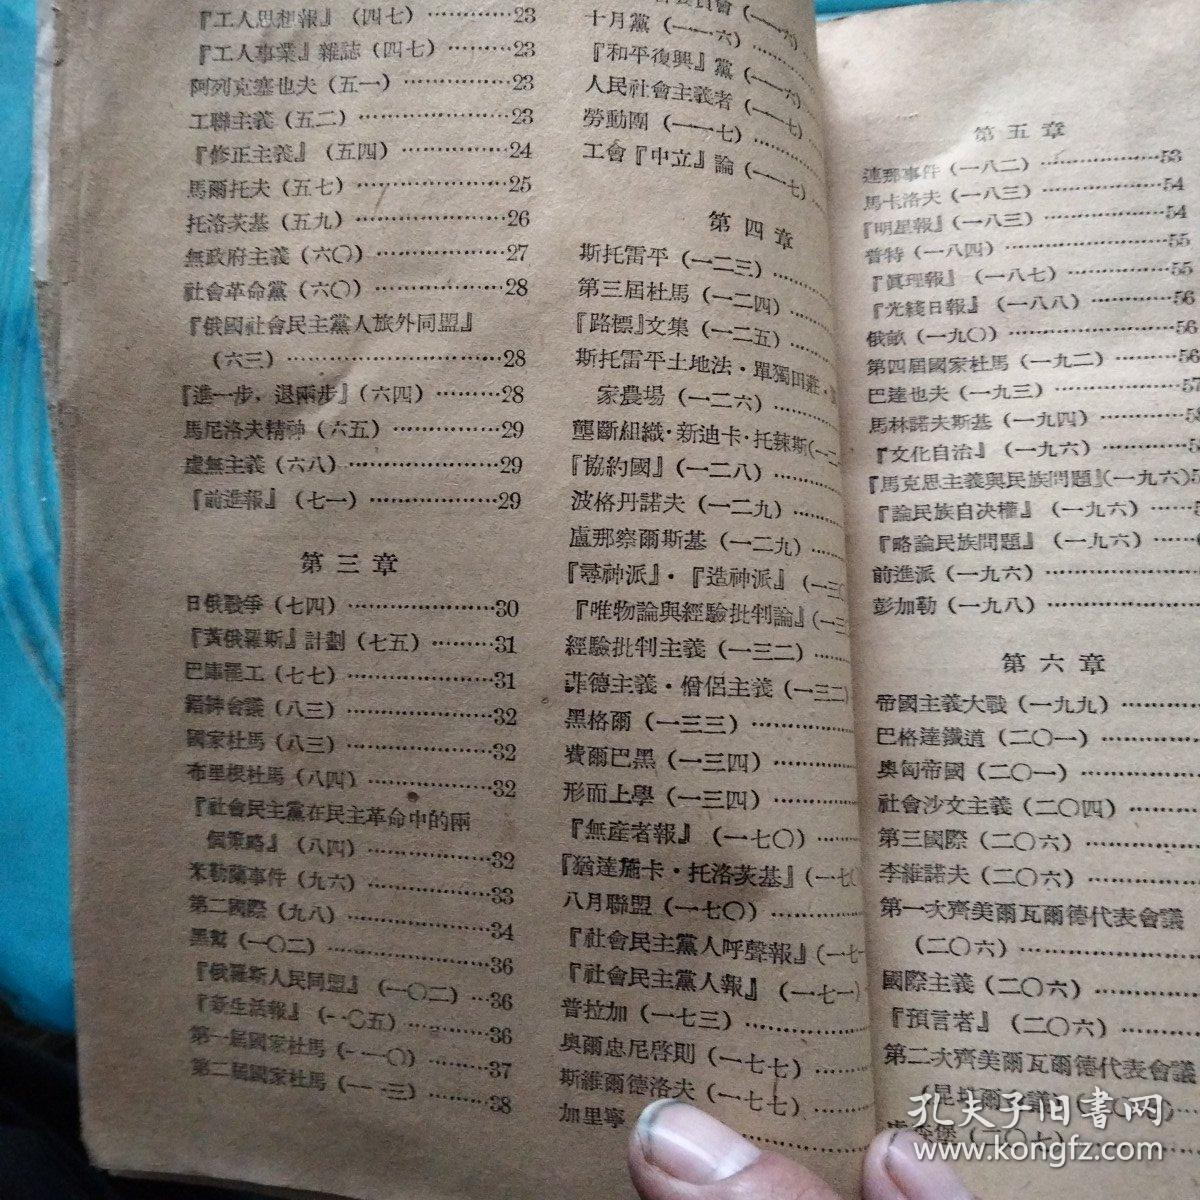 『工人思想報』(四七) ………23
『工人事業』雜誌(四七) ………23
阿列克塞也夫(五一) ………23
工聯主義(五二) ………23
『修正主義』(五四) ………24
馬爾托夫(五七) ………25
托洛茨基(五九) ………26
無政府主義(六〇) ………27
社會革命黨(六〇) ………28
『俄國社會民主黨人旅外同盟』
(六三) ………28
『進一步,退兩步』(六四) ………28
馬尼洛夫精神(六五) ………29
虛無主義(六八) ………29
『前進報』(七一) ………29
第三章
日俄戰爭(七四) ………30
『黃俄羅斯』計劃(七五) ………31
巴庫罷工(七七) ………31
(八三) ………32
國家杜馬(八三) ………32
布里根杜馬(八四) ………32
『社會民主黨在民主革命中的兩
個策略』(八四) ………32
米勒蘭事件(九六) ………33
第二國際(九八) ………34
黑幫(一〇二) ………36
『俄羅斯人民同盟』(一〇二) …36
『新生活報』(一〇五) ………36
第一屆國家杜馬(一一〇) ………37
第二屆國家杜馬(一一三) ………38
十月黨(一一六) ………
『和平復興』黨(一一六) ………
人民社會主義者(一一七)
勞動團(一一七) ………
工會『中立』論(一一七)
第四章
斯托雷平(一二三) ………
第三屆杜馬(一二四) ………
『路標』文集(一二五) ………
斯托雷平土地法·單獨田莊·
家農場(一二六) ………
壟斷組織·新迪卡·托辣斯(一二
『協約國』(一二八) ………
波格丹諾夫(一二九) ………
盧那察爾斯基(一二九) ………
『尋神派』·『造神派』(一三〇
『唯物論與經驗批判論』(一三
經驗批判主義(一三二) ………
菲德主義·僧侶主義(一三二)
黑格爾(一三三) ………
費爾巴黑(一三四) ………
形而上學(一三四) ………
『無產者報』(一七〇) ………
『猶達施卡·托洛茨基』(一七〇
八月聯盟(一七〇) ………
『社會民主黨人呼聲報』(一七一
『社會民主黨人報』(一七一)
普拉加(一七三) ………
奧爾忠尼啓則(一七七) ………
斯維爾德洛夫(一七七) ………
加里寧
第五章
連那事件(一八二) ………53
馬卡洛夫(一八三) ………54
『明星報』(一八三) ………54
普特(一八四) ………55
『眞理報』(一八七) ………55
『光綫日報』(一八八) ………56
俄畝(一九〇) ………56
第四屆國家杜馬(一九二) ………56
巴達也夫(一九三) ………57
馬林諾夫斯基(一九四) ………5
『文化自治』(一九六) ………5
『馬克思主義與民族問題』(一九六)5
『論民族自决權』(一九六) ………
『略論民族問題』(一九六) ………
前進派(一九六) ………
彭加勒(一九八) ………
第六章
帝國主義大戰(一九九) ………
巴格達鐵道(二〇一) ………
奧匈帝國(二〇一) ………
社會沙文主義(二〇四) ………
第三國際(二〇六) ………
李維諾夫(二〇六) ………
第一次齊美爾瓦爾德代表會議
(二〇六) ………
國際主義(二〇六) ………
『預言者』(二〇六) ………
第二次齊美爾瓦爾德代表會議
孔夫子旧書网
www.kongfz.com